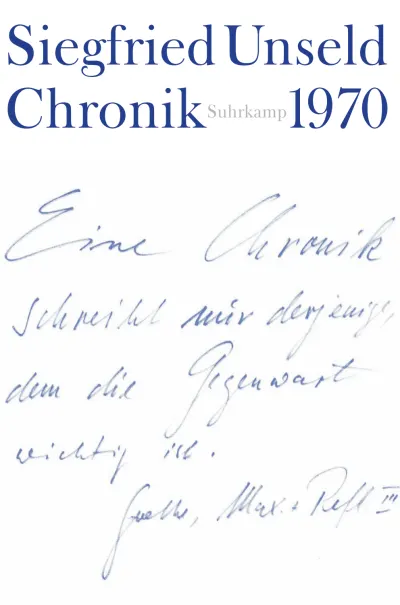 Siegfried Unseld
Chronik Suhrkamp 1970
Eine Chronik
schreibt nur derjenige,
dem die Gegenwart
wichtig ist.
Goethe, Max. + Refl III